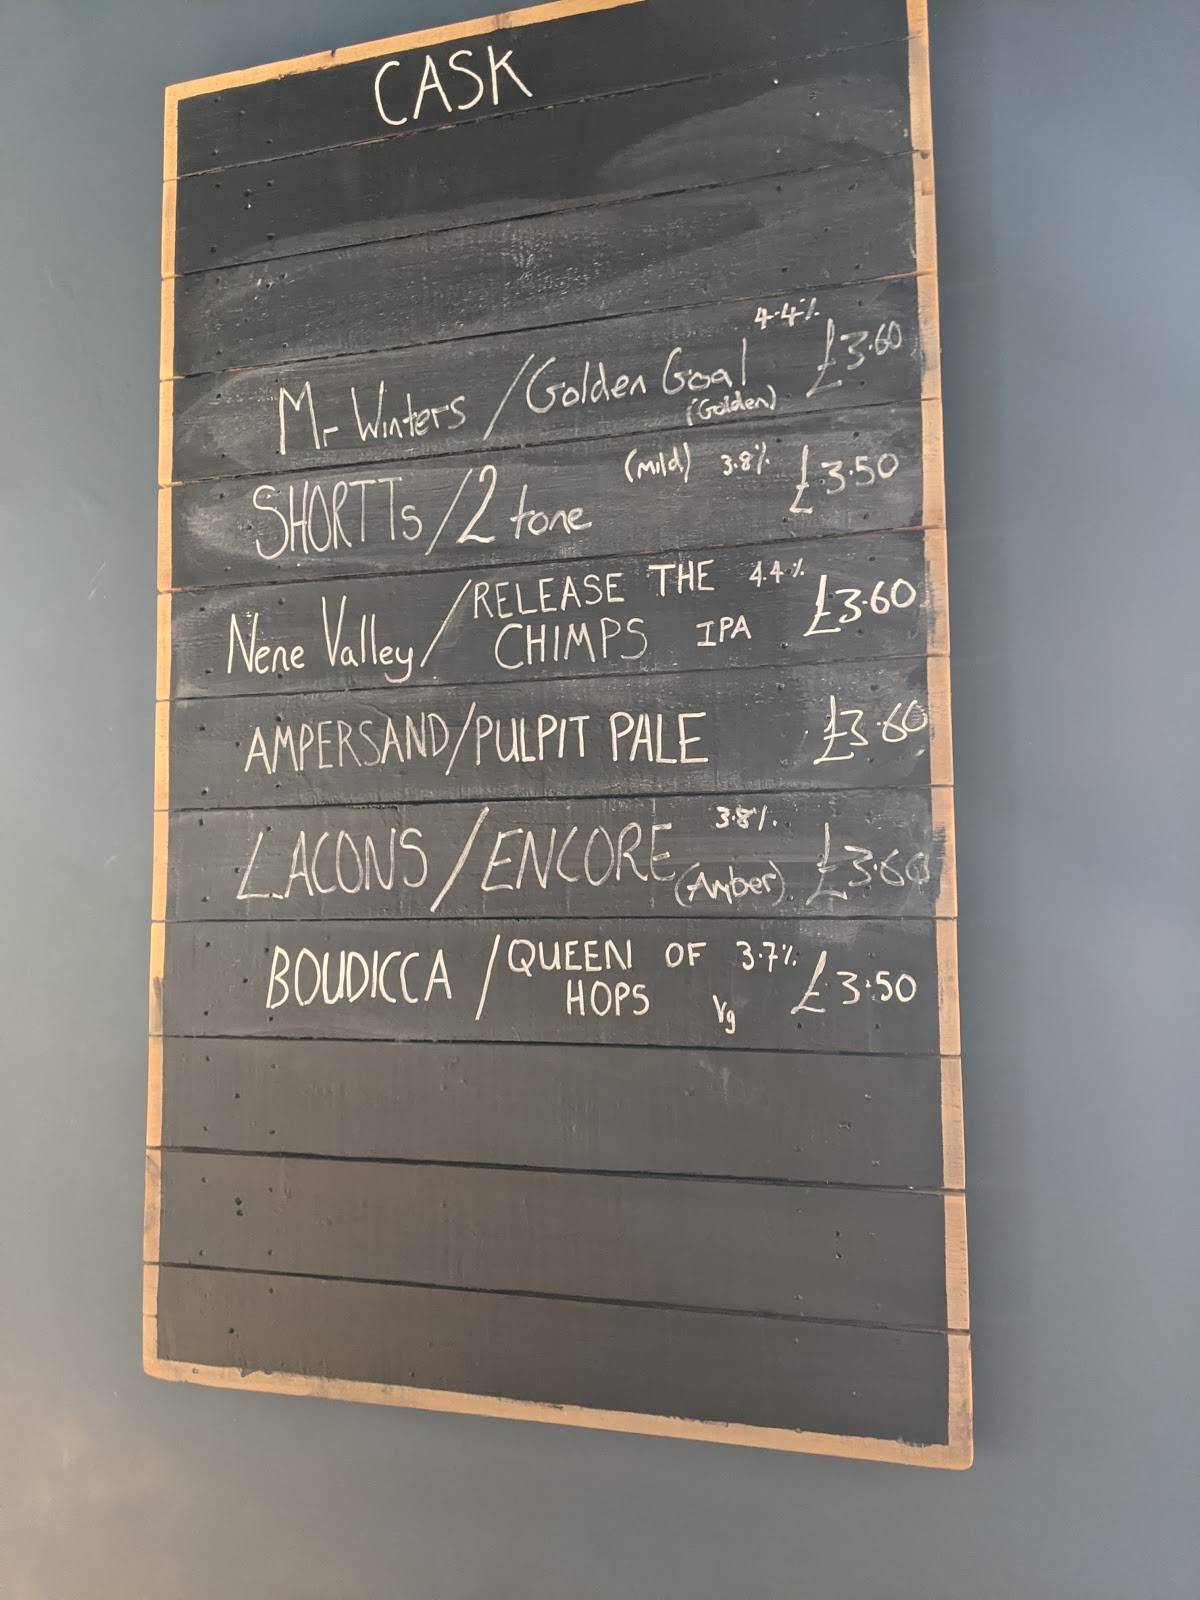 CASK
Mr Winters / Golden Goal 4.4% £3.60
(Golden)
SHORTTs / 2 tone (mild) 3.8% £3.50
Nene Valley / RELEASE THE 4.4% £3.60
CHIMPS IPA
AMPERSAND / PULPIT PALE £3.60
LACONS / ENCORE 3.8% £3.60
(Amber)
BOUDICCA / QUEEN OF 3.7% £3.50
HOPS Vg